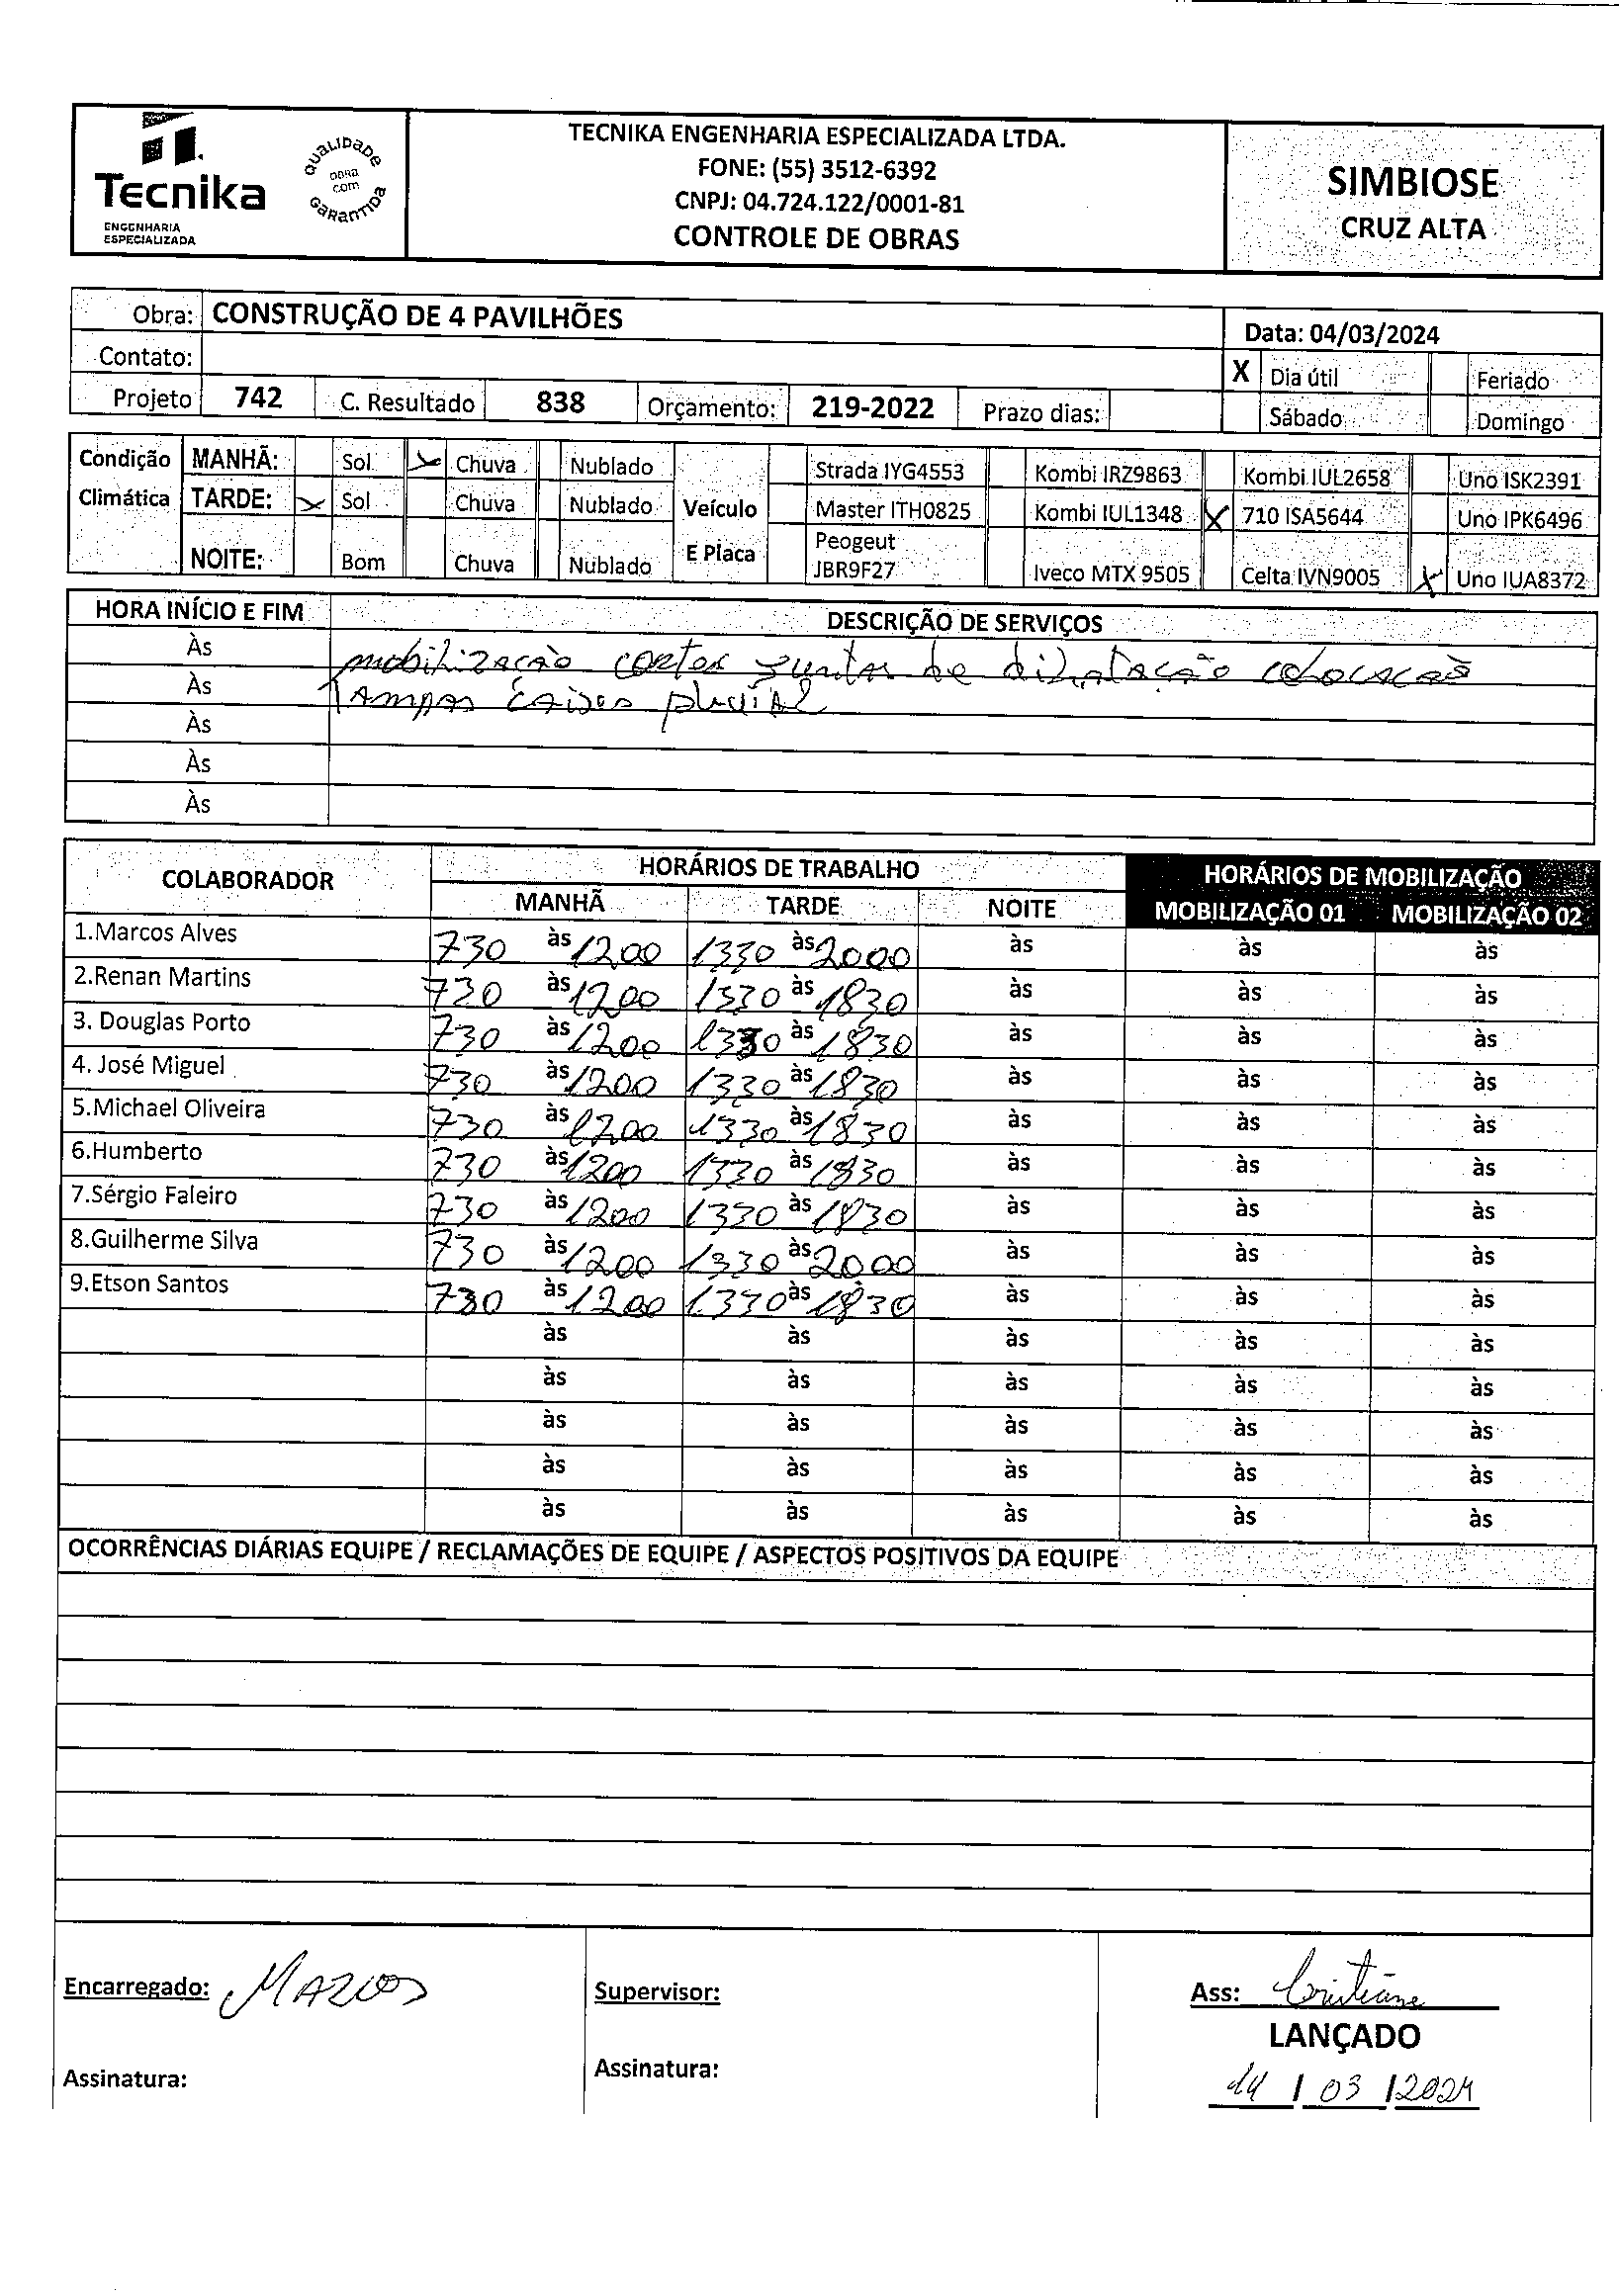 Tecnika
ENGENHARIA
ESPECIALIZADA
QUALIDADE
OBRA
COM
GARANTIDA
TECNIKA ENGENHARIA ESPECIALIZADA LTDA.
FONE: (55) 3512-6392
CNPJ: 04.724.122/0001-81
CONTROLE DE OBRAS
SIMBIOSE
CRUZ ALTA
Obra: CONSTRUÇÃO DE 4 PAVILHÕES
Data: 04/03/2024
Contato:
X Dia útil Feriado
Projeto 742 C. Resultado 838 Orçamento: 219-2022 Prazo dias:
Sábado Domingo
Condição Climática
MANHÃ: Sol X Chuva Nublado
TARDE: X Sol Chuva Nublado
NOITE: Bom Chuva Nublado
Veículo E Placa
Strada IYG4553 Kombi IRZ9863 Kombi IUL2658 Uno ISK2391
Master ITH0825 Kombi IUL1348 X 710 ISA5644 Uno IPK6496
Peogeut JBR9F27 Iveco MTX 9505 Celta IVN9005 X Uno IUA8372
HORA INÍCIO E FIM DESCRIÇÃO DE SERVIÇOS
Às mobilização cortes juntas de dilatação colocação
Às Tampas caixas pluvial
Às
Às
Às
COLABORADOR HORÁRIOS DE TRABALHO HORÁRIOS DE MOBILIZAÇÃO
MANHÃ TARDE NOITE MOBILIZAÇÃO 01 MOBILIZAÇÃO 02
1.Marcos Alves 730 às 1200 1330 às 2000 às às às
2.Renan Martins 730 às 1200 1330 às 1830 às às às
3. Douglas Porto 730 às 1200 1330 às 1830 às às às
4. José Miguel 730 às 1200 1330 às 1830 às às às
5.Michael Oliveira 730 às 1200 1330 às 1830 às às às
6.Humberto 730 às 1200 1330 às 1830 às às às
7.Sérgio Faleiro 730 às 1200 1330 às 1830 às às às
8.Guilherme Silva 730 às 1200 1330 às 2000 às às às
9.Etson Santos 730 às 1200 1330 às 1830 às às às
às às às às às
às às às às às
às às às às às
às às às às às
às às às às às
OCORRÊNCIAS DIÁRIAS EQUIPE / RECLAMAÇÕES DE EQUIPE / ASPECTOS POSITIVOS DA EQUIPE
Encarregado: MARCOS
Supervisor:
Ass: Cristiane
LANÇADO
Assinatura:
Assinatura:
14 / 03 / 2024